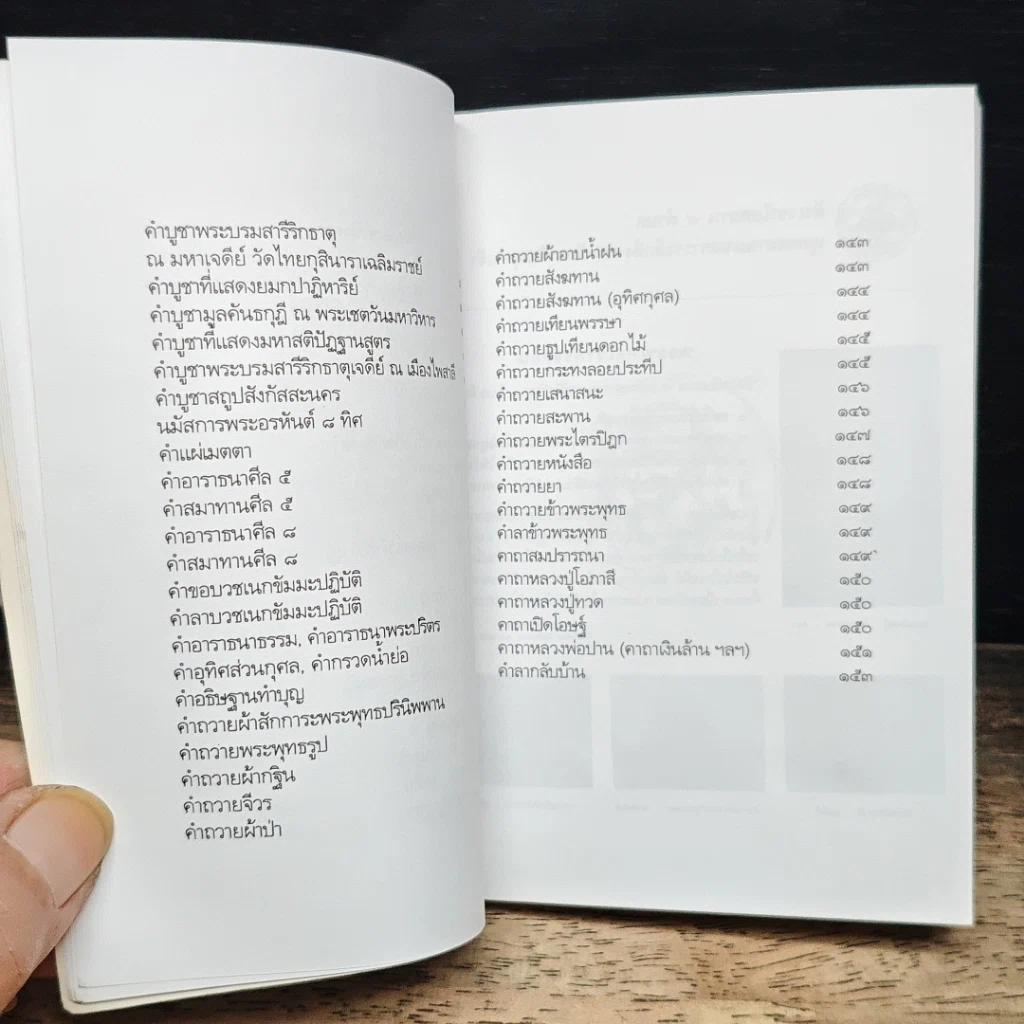 คำบูชาพระบรมสารีริกธาตุ
ณ มหาเจดีย์ วัดไทยกุสินาราเฉลิมราชย์
คำบูชาที่แสดงยมกปาฏิหาริย์
คำบูชามูลคันธกุฎี ณ พระเชตวันมหาวิหาร
คำบูชาที่แสดงมหาสติปัฏฐานสูตร
คำบูชาพระบรมสารีริกธาตุเจดีย์ ณ เมืองไพสาลี
คำบูชาสถูปสังกัสสะนคร
นมัสการพระอรหันต์ ๘ ทิศ
คำแผ่เมตตา
คำอาราธนาศีล ๕
คำสมาทานศีล ๕
คำอาราธนาศีล ๘
คำสมาทานศีล ๘
คำขอบวชเนกขัมมะปฏิบัติ
คำลาบวชเนกขัมมะปฏิบัติ
คำอาราธนาธรรม, คำอาราธนาพระปริตร
คำอุทิศส่วนกุศล, คำกรวดน้ำย่อ
คำอธิษฐานทำบุญ
คำถวายผ้าสักการะพระพุทธปรินิพพาน
คำถวายพระพุทธรูป
คำถวายผ้ากฐิน
คำถวายจีวร
คำถวายผ้าป่า
คำถวายผ้าอาบน้ำฝน ๑๔๓
คำถวายสังฆทาน ๑๔๓
คำถวายสังฆทาน (อุทิศกุศล) ๑๔๔
คำถวายเทียนพรรษา ๑๔๔
คำถวายธูปเทียนดอกไม้ ๑๔๕
คำถวายกระทงลอยประทีป ๑๔๕
คำถวายเสนาสนะ ๑๔๖
คำถวายสะพาน ๑๔๖
คำถวายพระไตรปิฎก ๑๔๗
คำถวายหนังสือ ๑๔๘
คำถวายยา ๑๔๘
คำถวายข้าวพระพุทธ ๑๔๙
คำลาข้าวพระพุทธ ๑๔๙
คาถาสมปรารถนา ๑๔๙
คาถาหลวงปู่โอภาสี ๑๕๐
คาถาหลวงปู่ทวด ๑๕๐
คาถาเปิดโอษฐ์ ๑๕๐
คาถาหลวงพ่อปาน (คาถาเงินล้าน ฯลฯ) ๑๕๑
คำลากลับบ้าน ๑๕๓